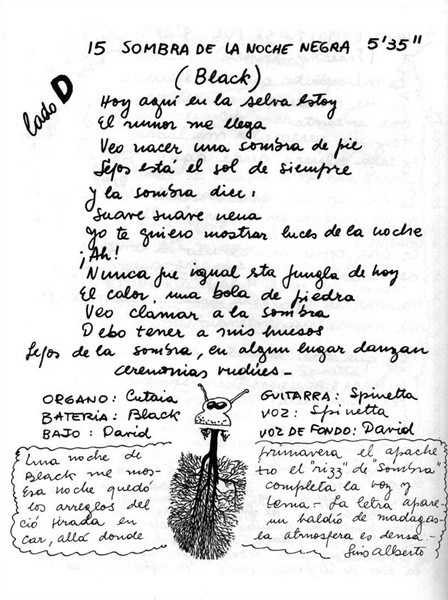 15 SOMBRA DE LA NOCHE NEGRA 5'35"
(Black)
lado D
Hoy aquí en la selva estoy
El rumor me llega
Veo nacer una sombra de pie
Lejos está el sol de siempre
Y la sombra dice:
Suave suave nena
Yo te quiero mostrar luces de la noche
¡Ah!
Nunca fue igual esta jungla de hoy
El calor, una bola de piedra
Veo clamar a la sombra
Debo tener a mis huesos
Lejos de la sombra, en algun lugar danzan
ceremonias vudúes -
ORGANO: Cutaia
BATERIA: Black
BAJO: David
GUITARRA: Spinetta
VOZ: Spinetta
VOZ DE FONDO: David
Una noche de primavera el apache
Black me mostro el "rizz" de "Sombra"
Esa noche quedó completa la voz y
los arreglos del tema - La letra apare-
ció tirada en un baldío de madagas-
car, allá donde la atmosfera es densa -
Luis Alberto